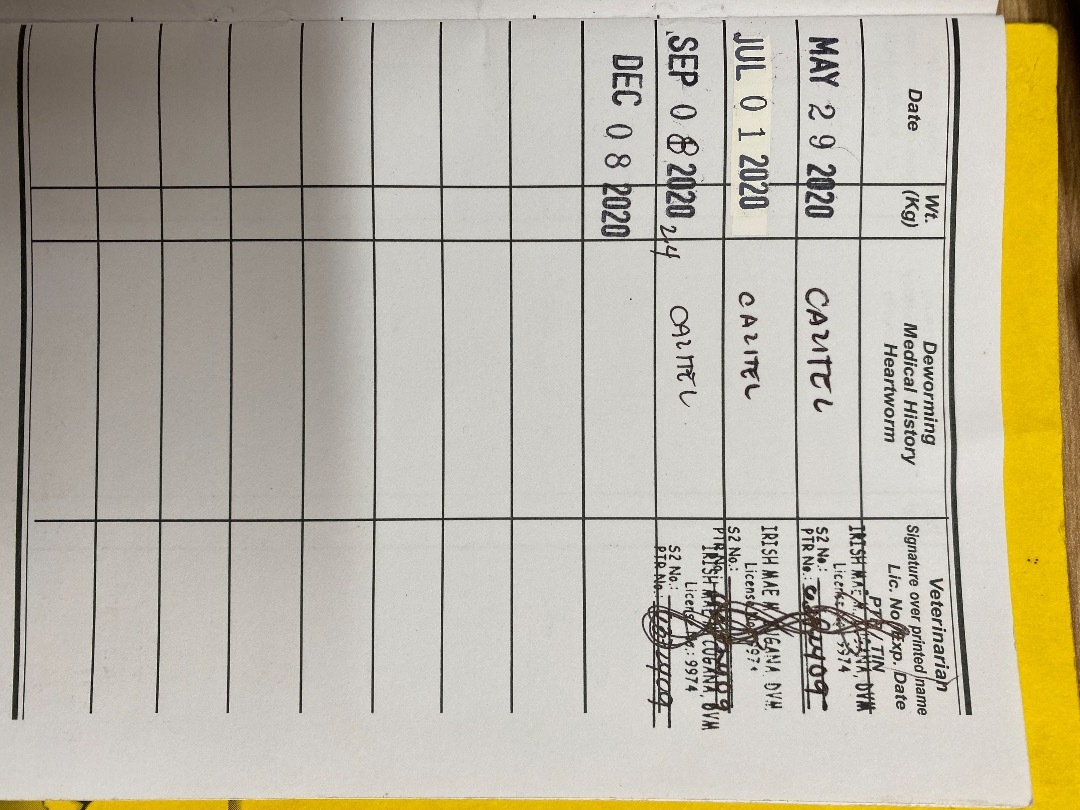 Date
Wt.
(Kg)
Deworming
Medical History
Heartworm
Veterinarian
Signature over printed name
Lic. No./Exp. Date
PTR/TIN
MAY 29 2020
CAZITEL
IRISH MAE M. DVM
License No.: 9974
S2 No.:
PTR No.:
JUL 01 2020
CAZITEL
IRISH MAE M. LUGANA, DVM
License No.: 9974
S2 No.:
PTR No.:
SEP 08 2020
24
CAZITEL
IRISH MAE LUGANA, DVM
License No.: 9974
S2 No.:
PTR No.:
DEC 08 2020